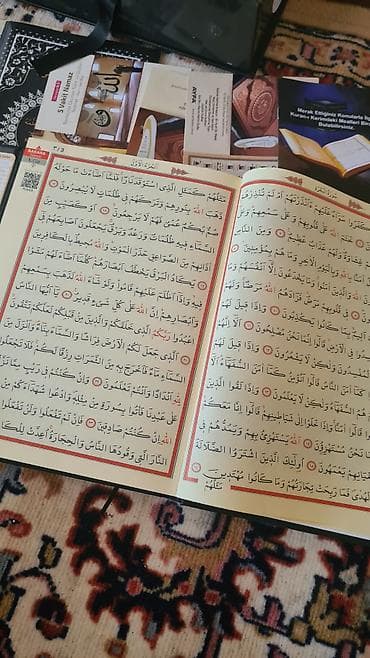 5 Vakit Namaz
AYFA
Merak Ettiğiniz Konularla İlg
Kuran-ı Kerimdeki Mealleri Bu
Bulabilirsiniz.
سُورَةُ الْبَقَرَةِ
كَفَرُوا سَوَٓاءٌ عَلَيْهِمْ ءَاَنْذَرْتَهُمْ اَمْ لَمْ تُنْذِرْهُمْ
خَتَمَ اللّٰهُ عَلٰى قُلُوبِهِمْ وَعَلٰى سَمْعِهِمْ وَعَلٰٓى
غِشَاوَةٌ وَلَهُمْ عَذَابٌ عَظِيمٌ وَمِنَ
بِاللّٰهِ وَبِالْيَوْمِ الْاٰخِرِ وَمَا هُمْ بِمُؤْمِنِينَ
اللّٰهَ وَالَّذِينَ اٰمَنُوا وَمَا يَخْدَعُونَ اِلَّٓا اَنْفُسَهُمْ وَمَا
فِي قُلُوبِهِمْ مَرَضٌ فَزَادَهُمُ اللّٰهُ مَرَضًا وَلَهُمْ
اَلِيمٌ بِمَا كَانُوا يَكْذِبُونَ وَاِذَا قِيلَ لَهُمْ
فِي الْاَرْضِ قَالُٓوا اِنَّمَا نَحْنُ مُصْلِحُونَ اَلَٓا اِنَّهُمْ
الْمُفْسِدُونَ وَلٰكِنْ لَا يَشْعُرُونَ وَاِذَا قِيلَ لَهُمْ
كَمَٓا اٰمَنَ النَّاسُ قَالُٓوا اَنُؤْمِنُ كَمَٓا اٰمَنَ السُّفَهَٓاءُ اَلَٓا
هُمُ السُّفَهَٓاءُ وَلٰكِنْ لَا يَعْلَمُونَ وَاِذَا لَقُوا الَّذِينَ
قَالُٓوا اٰمَنَّا وَاِذَا خَلَوْا اِلٰى شَيَاطِينِهِمْ قَالُٓوا اِنَّا مَعَكُمْ
نَحْنُ مُسْتَهْزِؤُنَ اَللّٰهُ يَسْتَهْزِئُ بِهِمْ وَيَمُدُّهُمْ فِي
طُغْيَانِهِمْ يَعْمَهُونَ اُو۬لٰٓئِكَ الَّذِينَ اشْتَرَوُا الضَّلَالَةَ
بِالْهُدٰى فَمَا رَبِحَتْ تِجَارَتُهُمْ وَمَا كَانُوا مُهْتَدِينَ
مَثَلُهُمْ
اَلْجُزْءُ الْاَوَّلُ
مَثَلُهُمْ كَمَثَلِ الَّذِي اسْتَوْقَدَ نَارًا فَلَمَّٓا اَضَٓاءَتْ مَا حَوْلَهُ
ذَهَبَ اللّٰهُ بِنُورِهِمْ وَتَرَكَهُمْ فِي ظُلُمَاتٍ لَا يُبْصِرُونَ
صُمٌّ بُكْمٌ عُمْيٌ فَهُمْ لَا يَرْجِعُونَ اَوْ كَصَيِّبٍ مِنَ
السَّمَٓاءِ فِيهِ ظُلُمَاتٌ وَرَعْدٌ وَبَرْقٌ يَجْعَلُونَ اَصَابِعَهُمْ فِٓي
اٰذَانِهِمْ مِنَ الصَّوَاعِقِ حَذَرَ الْمَوْتِ وَاللّٰهُ مُحِيطٌ بِالْكَافِرِينَ
يَكَادُ الْبَرْقُ يَخْطَفُ اَبْصَارَهُمْ كُلَّمَٓا اَضَٓاءَ لَهُمْ مَشَوْا
فِيهِ وَاِذَٓا اَظْلَمَ عَلَيْهِمْ قَامُوا وَلَوْ شَٓاءَ اللّٰهُ لَذَهَبَ بِسَمْعِهِمْ
وَاَبْصَارِهِمْ اِنَّ اللّٰهَ عَلٰى كُلِّ شَيْءٍ قَدِيرٌ يَٓا اَيُّهَا النَّاسُ
اعْبُدُوا رَبَّكُمُ الَّذِي خَلَقَكُمْ وَالَّذِينَ مِنْ قَبْلِكُمْ لَعَلَّكُمْ تَتَّقُونَ
اَلَّذِي جَعَلَ لَكُمُ الْاَرْضَ فِرَاشًا وَالسَّمَٓاءَ بِنَٓاءً وَاَنْزَلَ مِنَ
السَّمَٓاءِ مَٓاءً فَاَخْرَجَ بِهِ مِنَ الثَّمَرَاتِ رِزْقًا لَكُمْ فَلَا تَجْعَلُوا
لِلّٰهِ اَنْدَادًا وَاَنْتُمْ تَعْلَمُونَ وَاِنْ كُنْتُمْ فِي رَيْبٍ مِمَّا نَزَّلْنَا
عَلٰى عَبْدِنَا فَأْتُوا بِسُورَةٍ مِنْ مِثْلِهِ وَادْعُوا شُهَدَٓاءَكُمْ مِنْ
دُونِ اللّٰهِ اِنْ كُنْتُمْ صَادِقِينَ فَاِنْ لَمْ تَفْعَلُوا وَلَنْ تَفْعَلُوا
النَّارَ الَّتِي وَقُودُهَا النَّاسُ وَالْحِجَارَةُ اُعِدَّتْ لِلْكَا